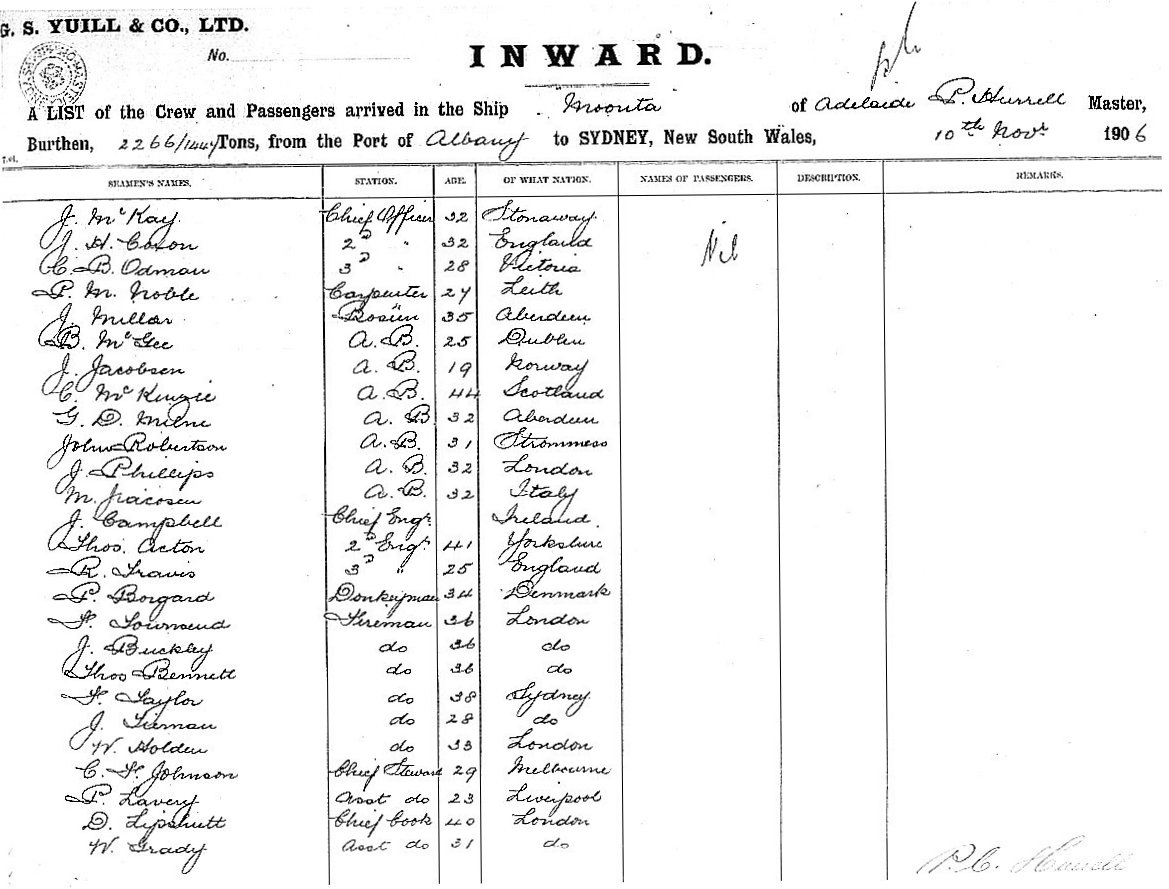 G. S. YUILL & CO., LTD.
No.
INWARD.
A LIST of the Crew and Passengers arrived in the Ship Moonta of Adelaide P. Hurrell Master,
Burthen, 2266/1447 Tons, from the Port of Albany to SYDNEY, New South Wales, 10th Novr 1906
SEAMEN'S NAMES. STATION. AGE. OF WHAT NATION. NAMES OF PASSENGERS. DESCRIPTION. REMARKS.
J. McKay Chief Officer 32 Stonaway Nil
J. H. Coxon 2D " 32 England
C. B. Odman 3D " 28 Victoria
P. M. Noble Carpenter 27 Leith
J. Millar Bosün 35 Aberdeen
B. McGee A. B. 25 Dublin
J. Jacobsen A. B. 19 Norway
C. McKenzie A. B. 44 Scotland
G. D. Milne A. B. 32 Aberdeen
John Robertson A. B. 31 Strommess
J. Phillips A. B. 32 London
M. A. B. 32 Italy
J. Campbell Chief Engr. Ireland.
Thos. Acton 2D Engr. 41 Yorkshire
R. Travis 3D " 25 England
P. Borgard Donkeyman 34 Denmark
F. Townsend Fireman 36 London
J. Buckley do 36 do
Thos Bennett do 36 do
F. Taylor do 38 Sydney
J. Tiernan do 28 do
W. Holden do 33 London
C. F. Johnson Chief Steward 29 Melbourne
P. Lavery Asst do 23 Liverpool
D. Lipshutt Chief Cook 40 London
W. Grady Asst do 31 do
P. C. Hurrell